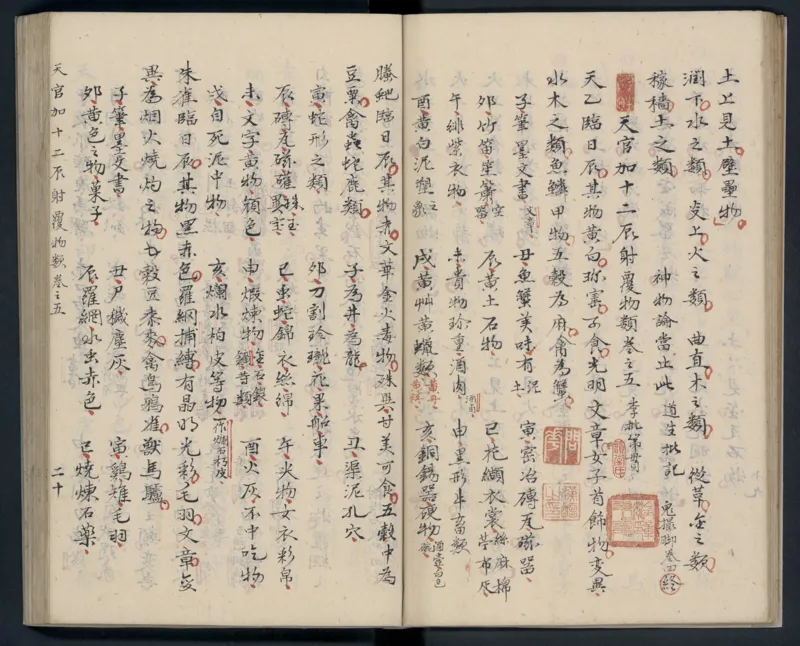 土上見土壁壘物
潤下水之類 炎上火之類 曲直木之類 從革金之類
稼穡土之類 神物論當止此 道生批記 鬼撮脚卷四終
天官加十二辰射覆物類卷之五
天乙臨日辰其物黄白珎寚可食光羽文章女子首飾物変異
水木之類魚鱗甲物五穀為麻禽為蟹
子筆墨文書文章 丑魚蟹美味有泥土 寅窑冶磚瓦疏器
卯竹笛笙簫空器 辰黄土石物 巳花纈衣裳絲麻棉苧布灰
午緋紫衣物 未貴物珎重酒肉 申黒形牛畜類
酉黄白泥塑之象 戌黄艸黄蠟類 亥銅錫器硬物
螣虵臨日辰其物赤文革金火毒物殊異甘美可食五穀中為
豆粟禽虫蛇鹿類 子為井為龍 丑渠泥孔穴
寅蛇形之類 卯刀割玲瓏花果船車
辰磚瓦疏 珠玉 巳虫蛇錦衣絲綿 午火物女衣彩帛
未文字畜物頟色 申煅煉物 酉火灰不中吃物
戌自死泥中物 亥爛水枸皮等物
朱雀臨日辰其物黒赤色羅網捕縛有晶明光彩毛羽文章
異為烟火燒灼之物七穀豆黍禽烏鴉雀獸馬驢
子筆墨文書 丑尸穢塵灰 寅鷄雉毛羽
卯黄色之物菓子 辰羅網水虫赤色 巳燒煉石藥
天官加十二辰射覆物類卷之五 二十